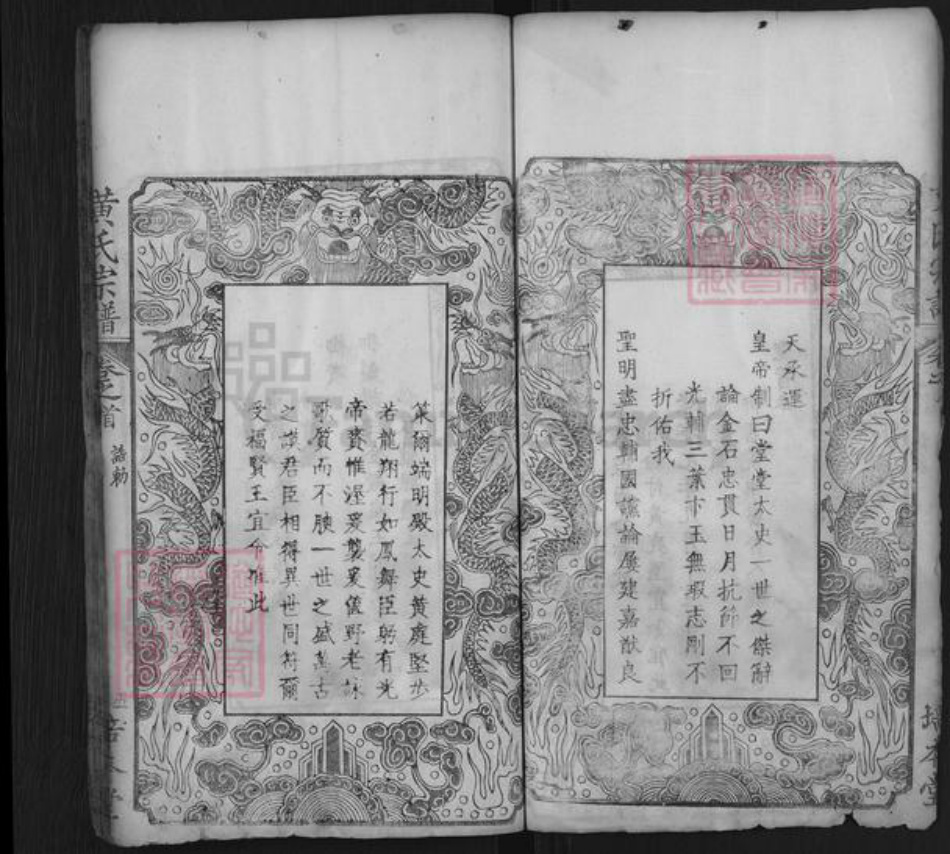 天承運
皇帝制曰堂堂太史一世之傑辭
論金石忠貫日月抗節不回
光輔三葉市玉無瑕志剛不
折佑我
聖明盡忠輔國讜論屢建嘉猷良
策爾端明殿太史黃庭堅步
若龍翔行如鳳舞臣躬有光
帝賚惟渥爰製爰儀野老詠
歌質而不腴一世之盛萬古
之談君臣相得異世同符爾
受福賢王宜令准此
黃氏宗譜
卷之首
誥勅